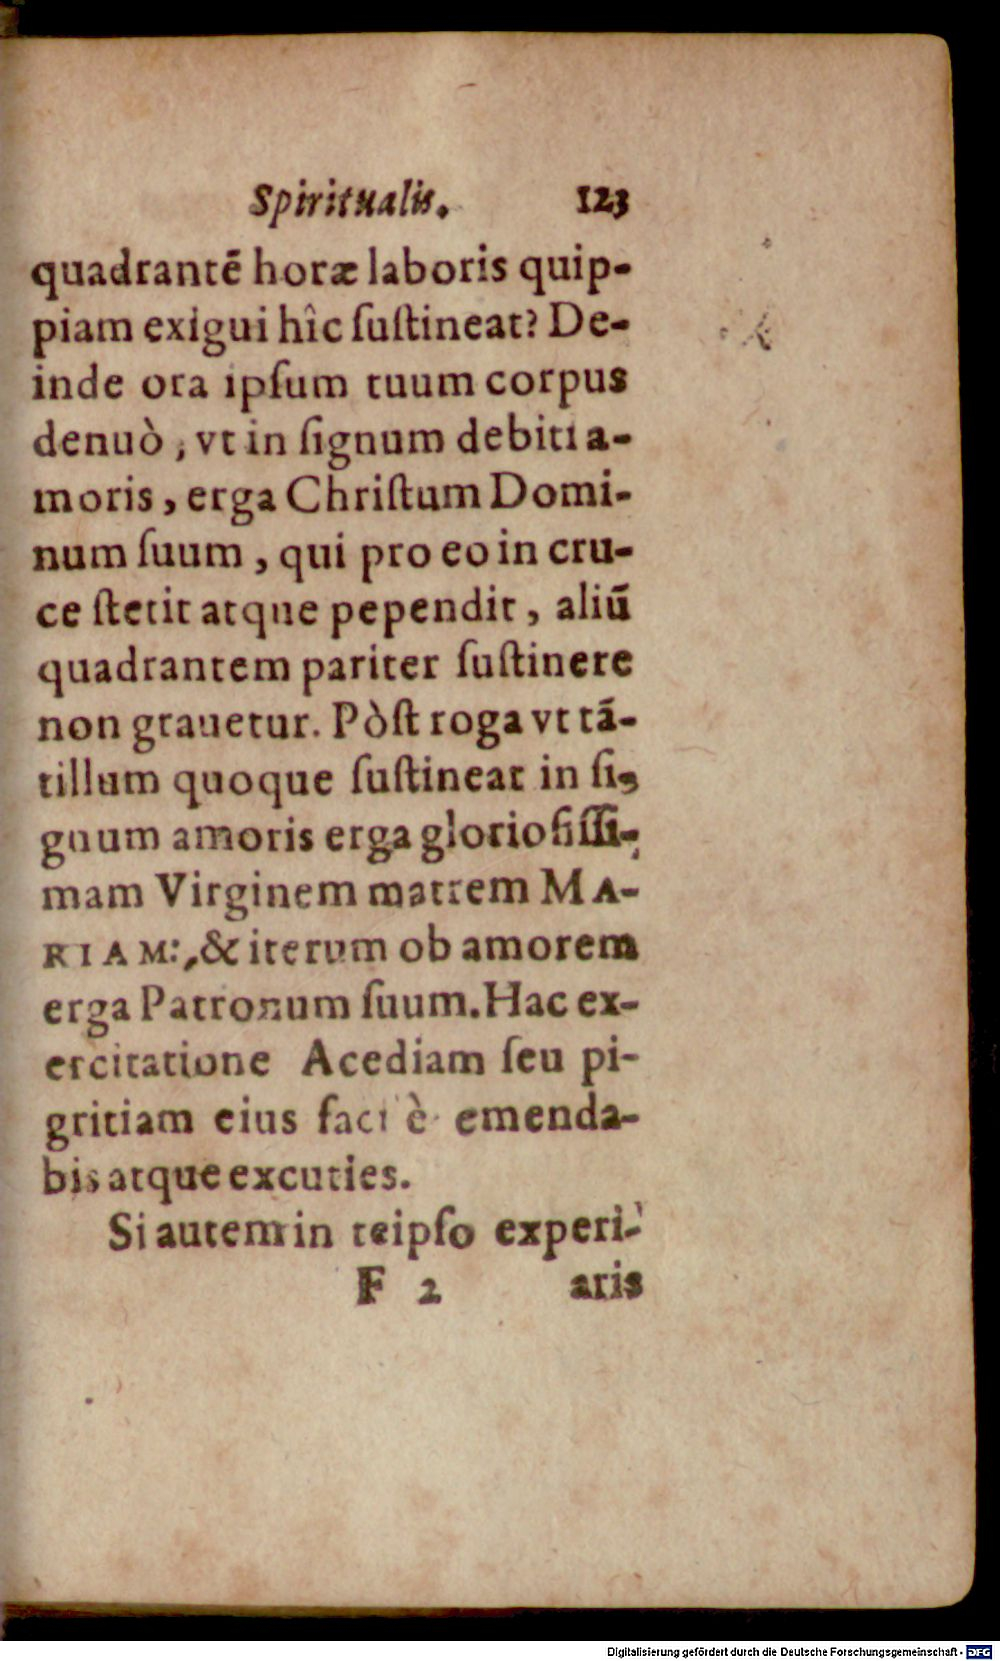 Spiritualis. 123
quadrantẽ horæ laboris quip-
piam exigui hîc ſuſtineat? De-
inde ora ipſum tuum corpus
denuò, vt in ſignum debiti a-
moris, erga Chriſtum Domi-
num ſuum, qui pro eo in cru-
ce ſtetit atque pependit, aliũ
quadrantem pariter ſuſtinere
non grauetur. Pòſt roga vt tã-
tillum quoque ſuſtineat in ſi-
gnum amoris erga glorioſiſſi-
mam Virginem matrem MA-
RIAM:, & iterum ob amorem
erga Patronum ſuum. Hac ex-
ercitatione Acediam ſeu pi-
gritiam eius facilè emenda-
bis atque excuties.
Si autem in teipſo experi-
F 2 aris
Digitalisierung gefördert durch die Deutsche Forschungsgemeinschaft - DFG